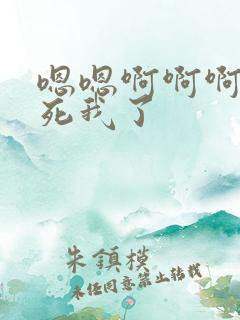 嗯嗯啊啊啊
死我了
朱鎮模
未经同意禁止转载